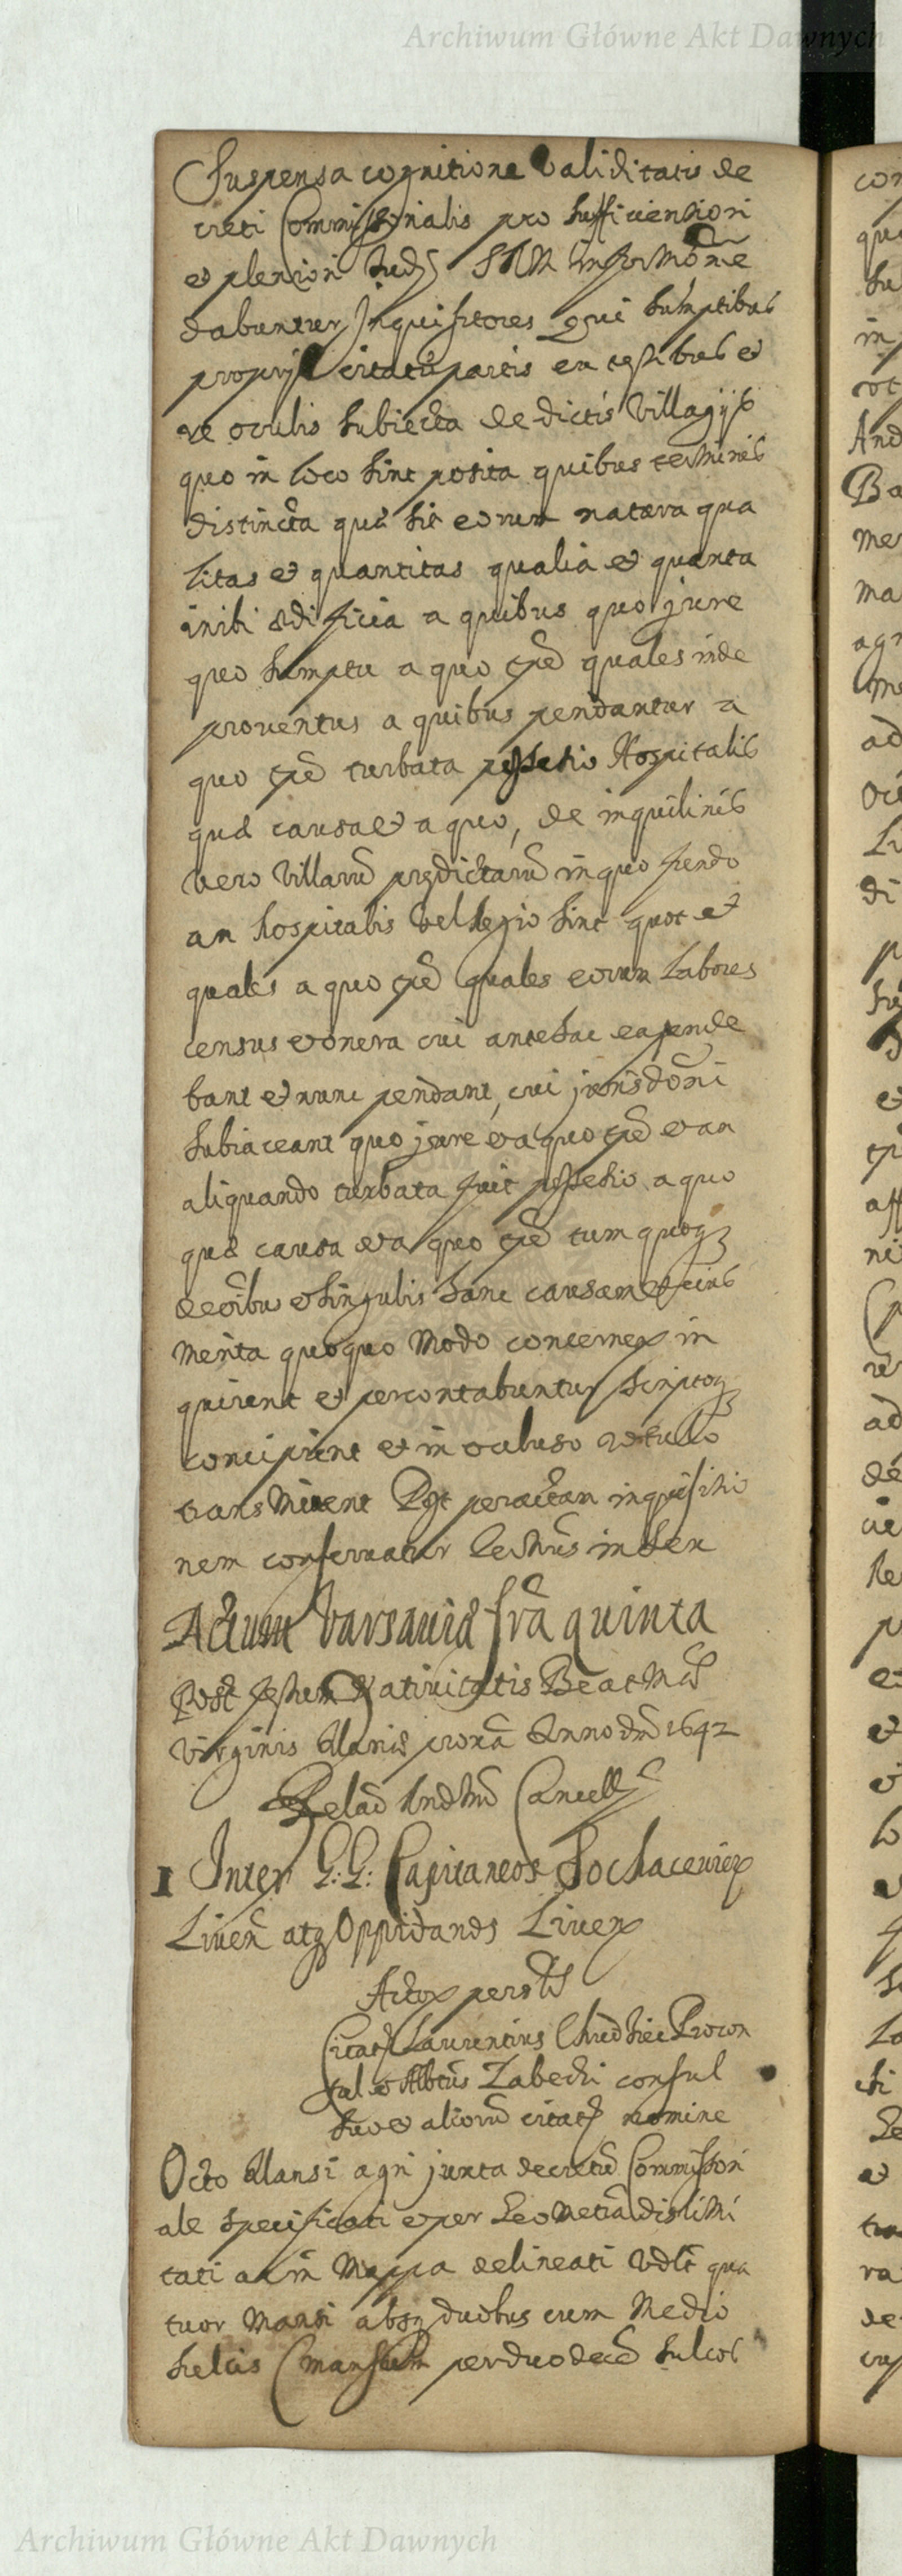 Archiwum Główne Akt Dawnych
Suspensa cognitione validitatis de
creti Commissorialis pro sufficientiori
et pleniori Judij SRM informõne
dabuntur Inquisitores qui sumptibus
proprijs citatũ partis ex testibus et
re oculis subiecta de dictis Villagijs
quo in loco sint posita quibus terminis
distincta quæ sit eorum natura qua
litas et quantitas qualia et quanta
inibi ædificia a quibus quo jure
quo sumptu a quo tp̃e quales inde
proventus a quibus pendantur a
quo tp̃e turbata possessio Hospitalis
qua causa et a quo, de inquilinis
vero Villarũ prædictarũ in quo fundo
an hospitalis vel regio sint quot et
quales a quo tp̃e quales eorum labores
census et onera cui antehac ea pende
bant et nunc pendant, cui jurisdõni
subiaceant quo jure et a quo tp̃e et an
aliquando turbata fuit possessio a quo
qua causa et a quo tp̃e tum quoqꝫ
de oĩbus et singulis hanc causam et eius
merita quoquo modo concernen in
quirent et percontabuntur scriptoqꝫ
concipient et in ocluso rotulo
transmittent Post peractam inquisitio
nem conservatur Terminus in
Actum Varsaviæ fr̃a quinta
Post festum Nativitatis Beatmæ
Virginis Mariæ proxã Anno dñi 1642
Relaõ Cancell
1 Inter G: G: Capitaneos Sochacevien
Liven̄ atqꝫ Oppidanos Liven
Actor pers
Citati Laurentius Procon
sul et Albtus Zabecki consul
suo et aliorũ citat nomine
Octo Mansi agri juxta decretũ Commissori
ale specificati et per Geometrã dislimi
tati ac in Mappa delineati vdlt qua
tuor Mansi absqꝫ duobus cum medio
sulcis (mansum per duodecĩ sulcos
Archiwum Główne Akt Dawnych